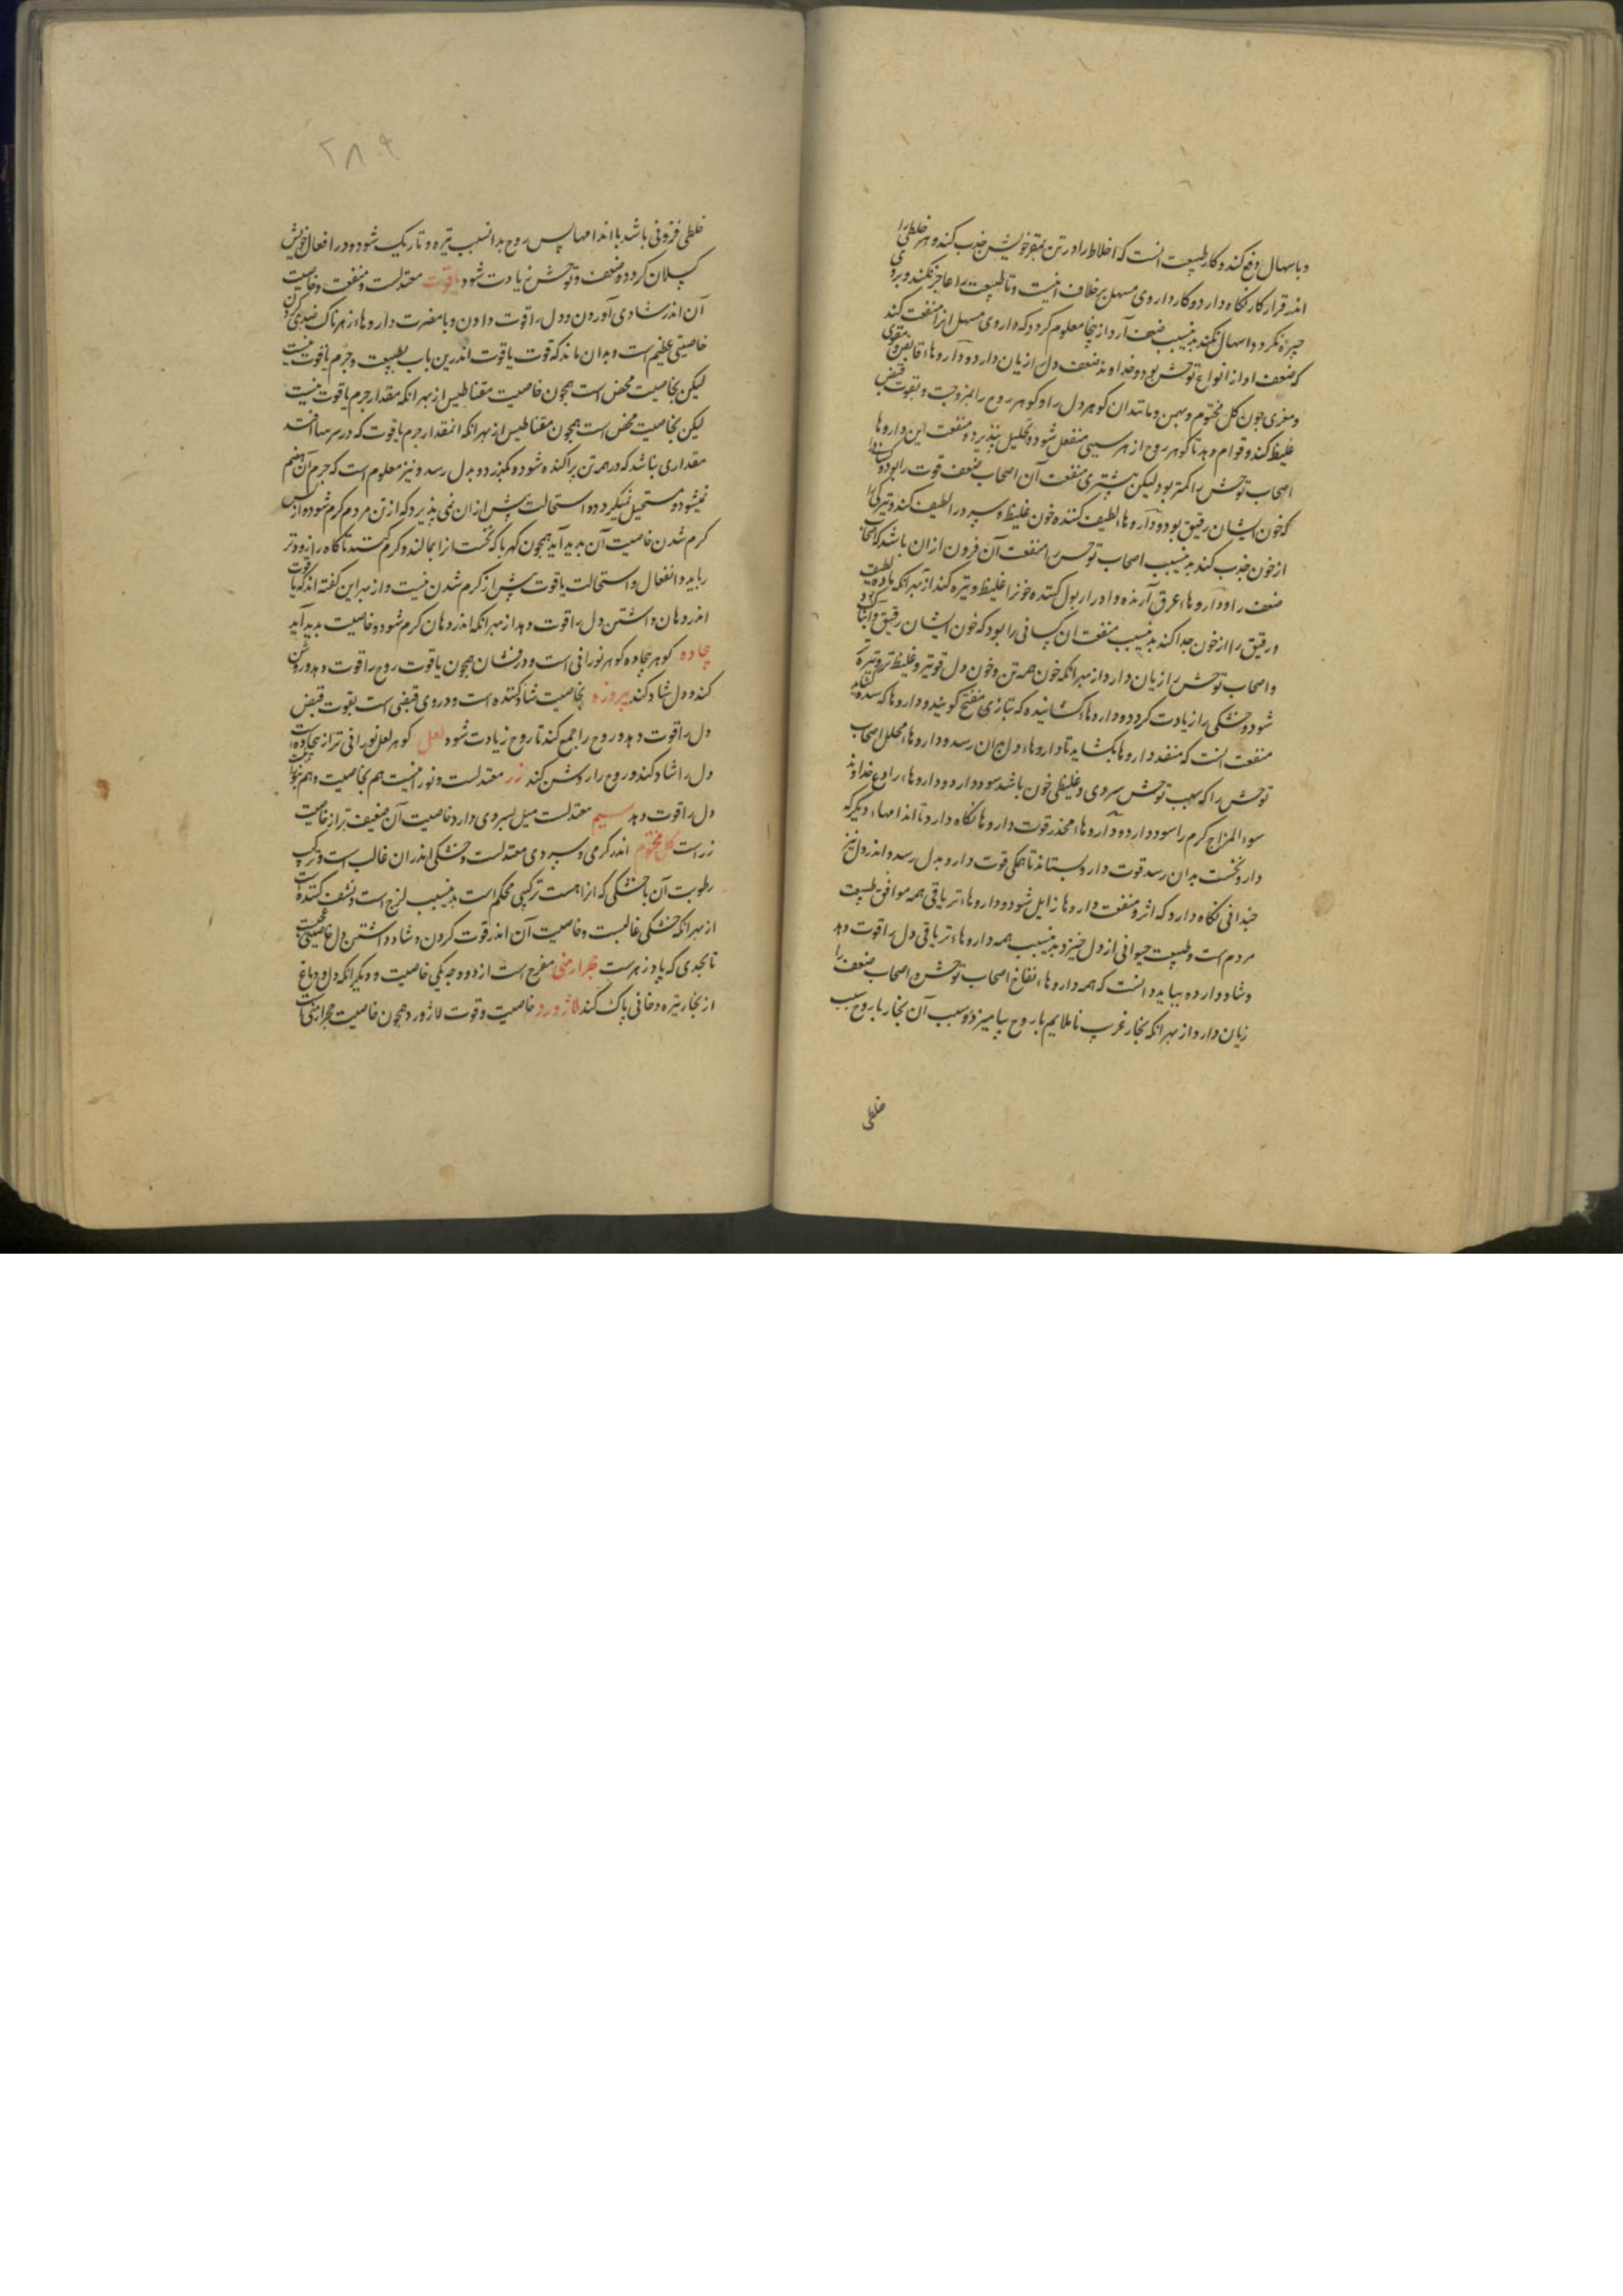 وباسهال دفع کند و کار طبیعت انست که اخلاط را در تن بمقر خویش جذب کند و هر خلطی را
اندر قرار کار نکاه دارد و کار داروی مسهل برخلاف اینست و تا طبیعت را عاجز نکند و بروی
جیره نکردد اسهال نکند بدینسبب ضعف آرد از ینجا معلوم کردد که داروی مسهل انرا منفعت کند
که ضعف او از انواع توحش بود و خداوند ضعف دل را زیان دارد و داروهاء قابض و مقوی
و مغری جون کل مختوم و بهمن و مانند ان کوهر دل را و کوهر روح را بلزوجت و بقوت قبض
غلیظ کند و قوام دهد تا کوهر روح از هر سببی منفعل نشود و تحلیل نپذیرد و منفعت این داروها
اصحاب توحش را کمتر بود لیکن بیشتری منفعت آن اصحاب ضعف قوت را بود و کسانی را
که خون ایشان رقیق بود و داروهاء لطیف کننده خون غلیظ و سپرد را لطیف کند و تیرکی را
از خون جذب کند بدینسبب اصحاب توحش را منفعت آن فزون ازان باشد که اصحاب
ضعف را و داروهاء عرق آرنده و ادرار بول کننده خونرا غلیظ و تیره کند از بهر انکه ماده لطیف
و رقیق را از خون جدا کند بدینسبب منفعت ان کسانی را بود که خون ایشان رقیق و آبناک بود
و اصحاب توحش را زیان دارد از بهر انکه خون همه تن و خون دل قویتر و غلیظ تر و تیره
شود و خشکی را زیادت کردد و داروهاء کشاینده که بتازی مفتح کویند و داروها که سده کشاید
منفعت انست که منفد داروها بکشاید تا داروهاء دل بدان رسد و داروهاء محلل اصحاب
توحش را که سبب توحش سردی و غلیظی خون باشد سود دارد و داروهاء رادع خداوند
سوء المزاج کرم را سود دارد و داروهاء مخدر قوت داروها نکاه دارد تا اندامهاء دیکر که
دارو نخست بدان رسد قوت دارو بستاند تا همکی قوت دارو بدل رسد و اندر دل نیز
جندانی نکاه دارد که اثر و منفعت داروها زایل شود و داروهاء تریاقی همه موافق طبیعت
مردم است و طبیعت حیوانی از دل خیزد بدینسبب همه داروهاء تریاقی دل را قوت دهد
و شاد دارد و بباید دانست که همه داروهاء نفاخ اصحاب توحش و اصحاب ضعف را
زیان دارد از بهر انکه بخار غریب ناملایم با روح بیامیزد و سبب آن بخار با روح سبب
خلطی
۲۸۹
خلطی فزونی باشد با اندامها پس روح بدانسبب تیره و تاریک شود و در افعال خویش
کسلان کردد و ضعف و توحش زیادت شود یاقوت معتدلست و منفعت و خاصیت
آن اندر شادی آوردن و دل را قوت دادن و با مضرت داروهاء زهرناک ضدی کردن
خاصیتی عظیم است و بدان ماند که قوت یاقوت اندرین باب بطبیعت و جرم یاقوت نیست
لیکن بخاصیت محض است همچون خاصیت مقناطیس از بهر انکه مقدار جرم یاقوت نیست
لیکن بخاصیت محض است همچون مقناطیس از بهر انکه انمقدار جرم یاقوت که در
مقداری نباشد که در همه تن پراکنده شود و بکبزرد و بدل رسد و نیز معلوم است که جرم آن هضم
نمیشود و مستحیل نمیکردد و استحالت بیش ازان نمی پذیرد که از تن مردم کرم شود و از پس
کرم شدن خاصیت آن بدید آید همچون کهربا که نخست انرا بمالند و کرم کنند تا کاه را زودتر
رباید و انفعال و استحالت یاقوت بیش از کرم شدن نیست و از بهر این کفته اند که یاقوت
اندر دهان داشتن دل را قوت دهد از بهر انکه اندر دهان کرم شود و خاصیت بدید آید
بجاده کوهر بجاده کوهر نورانی است و درفشان همچون یاقوت روح را قوت دهد و روشن
کند و دل شاد کند پیروزه بخاصیت شاد کننده است و در وی قبضی است بقوت قبض
دل را قوت دهد و روح را جمع کند تا روح زیادت شود لعل کوهر لعل نورانی تر از بجاده است
دل را شاد کند و روح را روشن کند زر معتدلست و نورانیست هم بخاصیت و هم
دل را قوت دهد سیم معتدلست میل بسردی دارد خاصیت آن ضعیف تر از خاصیت
زر است کل مختوم اندر کرمی و سپردی معتدلست و خشکی اندران غالب است و ترکیب
رطوبت آن با خشکی که انرا هست ترکیبی محکم است بدینسبب لزج است و نشف کننده است
از بهر انکه خشکی غالبست و خاصیت آن اندر قوت کردن و شاد داشتن دل خاصیتی است
تا بحدی که پادزهرست حجر ارمنی مفرح است از دو وجه یکی خاصیت و دیکر انکه دل و دماغ
از بخار تیره دخانی پاک کند لاژورد خاصیت و قوت لاژورد همچون خاصیت حجر ارمنی است